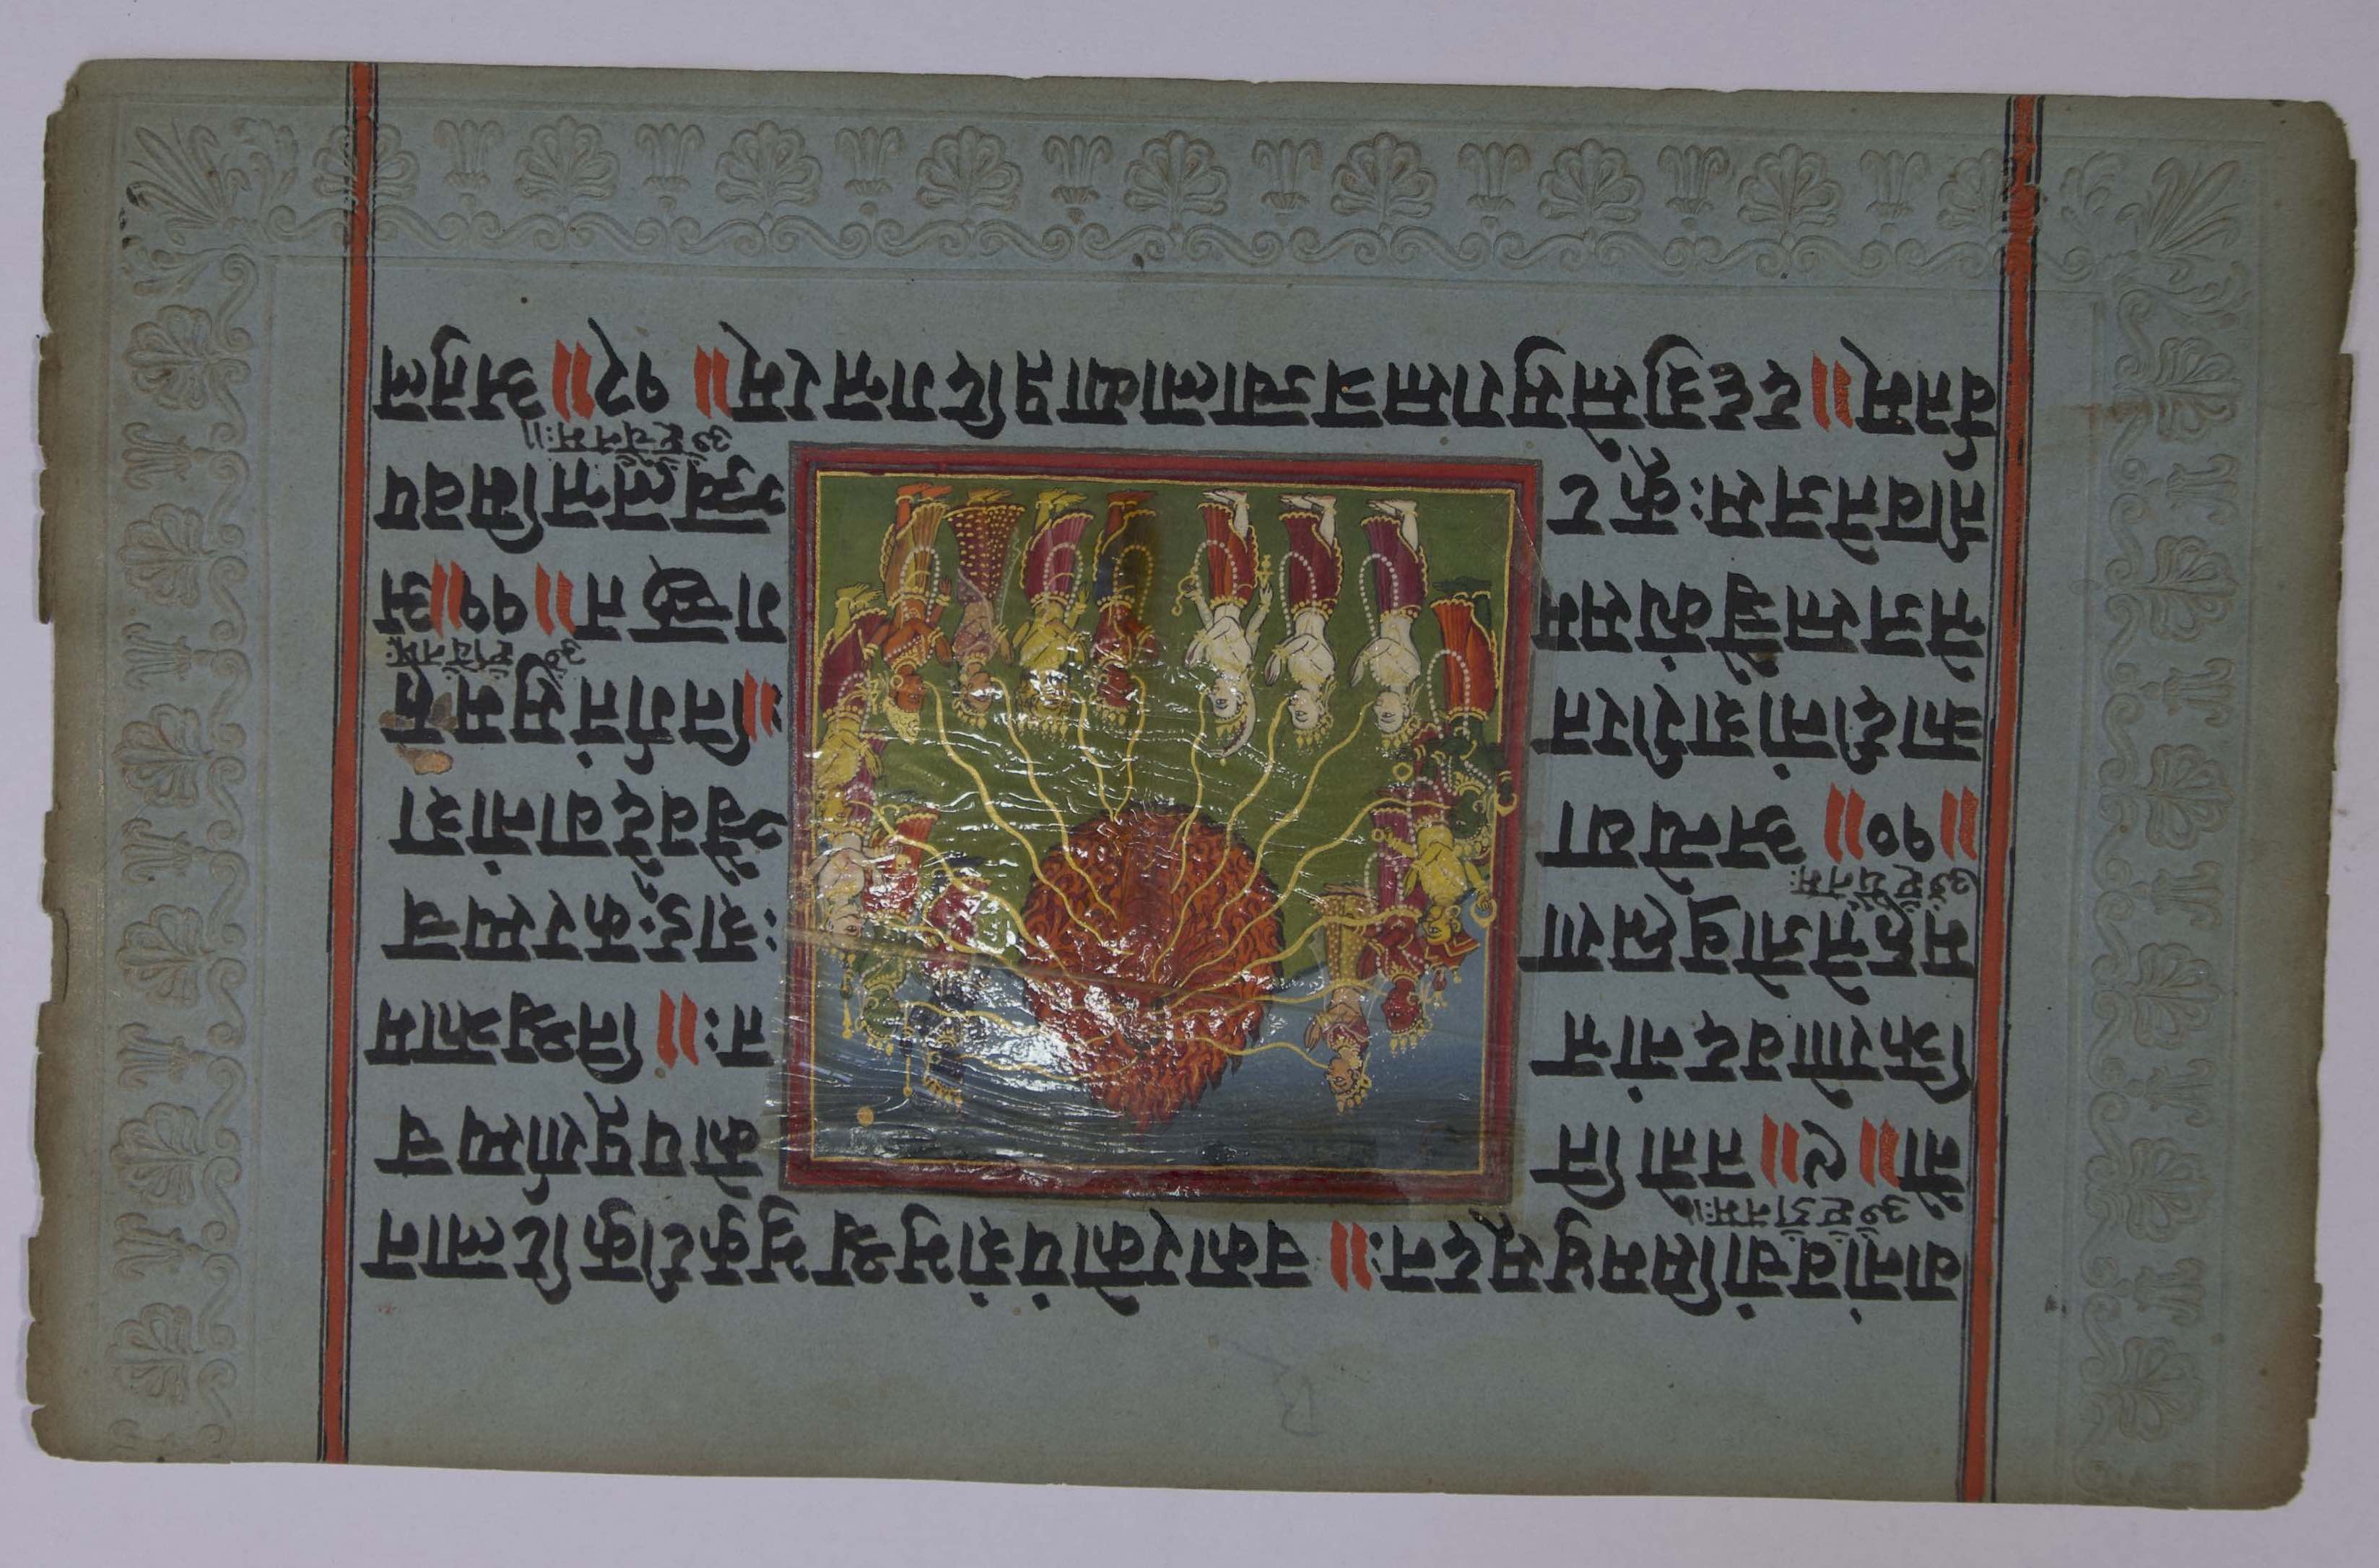 वानांवचांसिमधुसूदनः॥ चकारकोपंशंभुश्चभ्रुकुटीकुटिलान
नौ॥९॥ततोति कोपपूर्णस्यच
क्रिणोवदनांत्त तः॥ निश्चक्राम
महत्तेजोब्रह्मण ःशङ्करस्यच
॥१०॥ अन्येषा ञ्चैवदेवानांश
क्रादीनांशरीरत ः॥निर्गतंसुमह
त्तेजस्तच्चैक्यंसम गच्छत॥११॥अ
तीवतेजसःकूट ञ्ज्वलन्तमिवप
र्वतम्॥ददृशुस्तेसुरास्तत्रज्वालाव्याप्तदिगन्तरम्॥१२॥अतुल